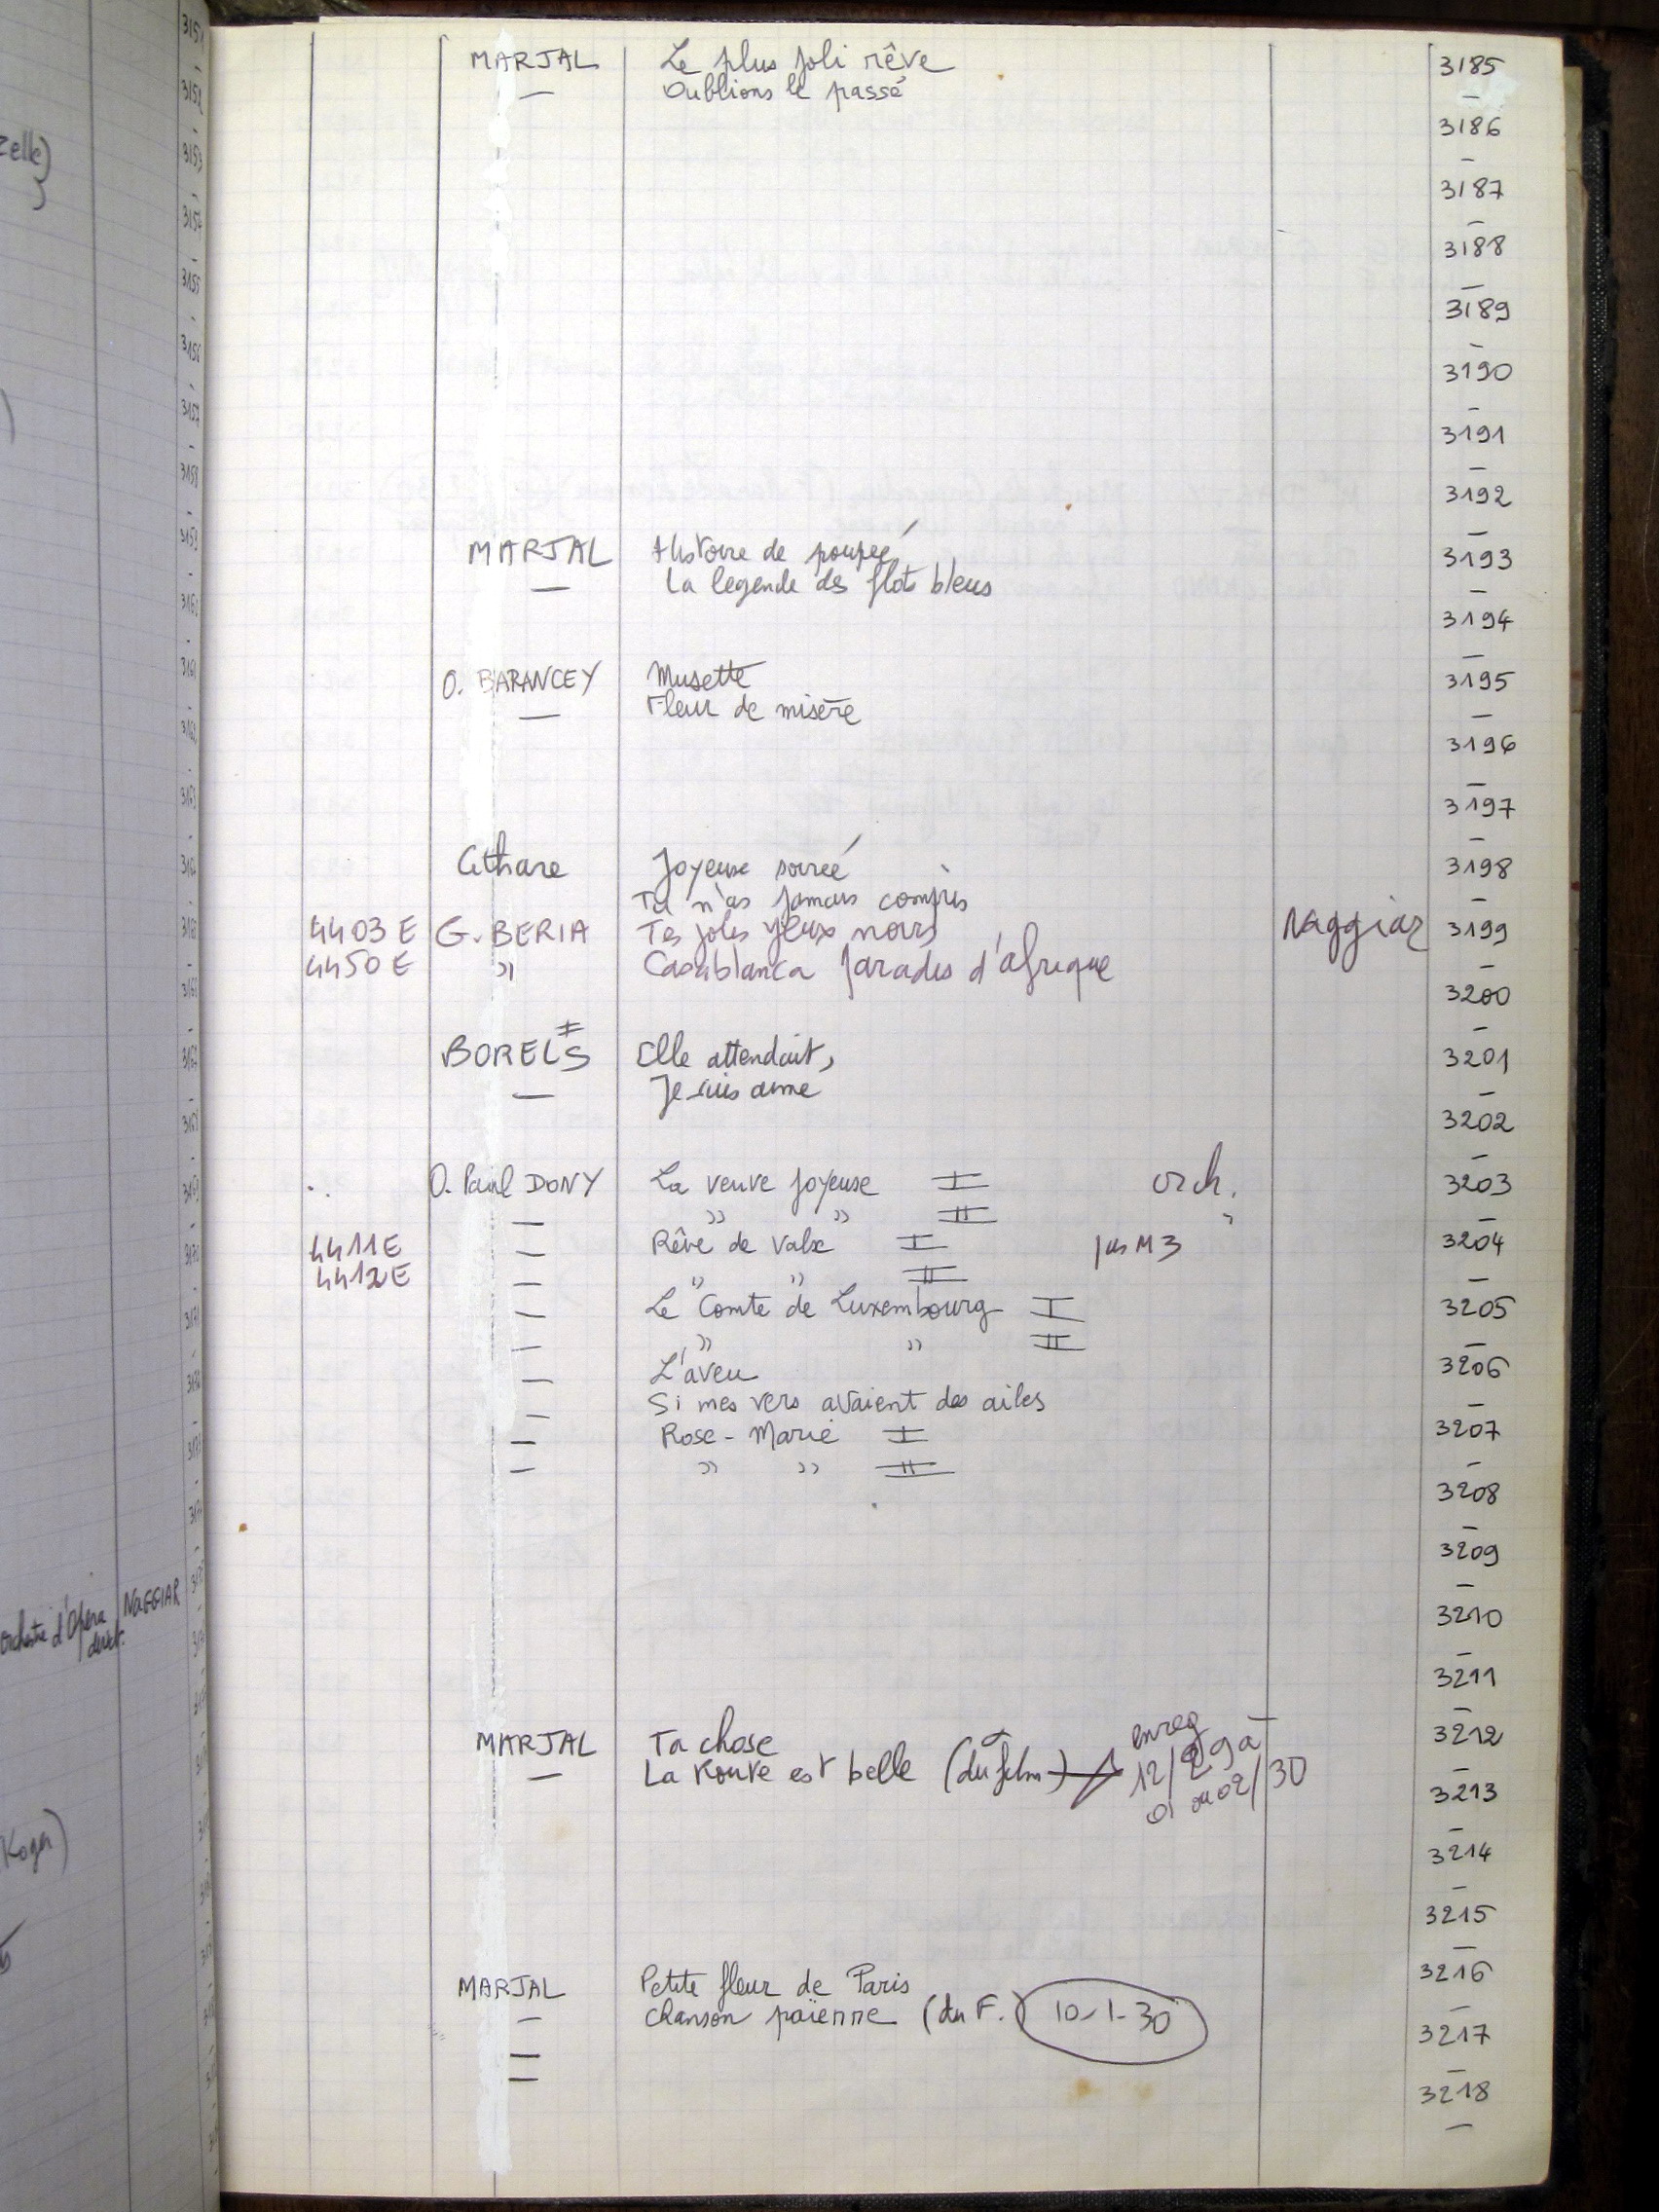 MARJAL Le plus joli rêve 3185
— Oublions le passé —
3186
—
3187
—
3188
—
3189
—
3190
—
3191
—
3192
—
MARJAL Histoire de poupée 3193
— La legende des flots bleus —
3194
—
O. BARANCEY Musette 3195
— Fleur de misère —
3196
—
3197
—
Cithare Joyeuse soireé 3198
Tu n'as jamais compris —
4403 E G. BERIA Tes jolis yeux noirs Naggiar 3199
4450 E " Casablanca paradis d'afrique —
3200
—
BORELS Elle attendait, 3201
— Je suis aime —
3202
—
O. Paul DONY La veuve joyeuse I orch. 3203
— " " II " —
4411E — Rêve de valse I pas M3 3204
4412E — " " II —
— Le Comte de Luxembourg I 3205
— " " II —
— L'aveu 3206
— Si mes vers avaient des ailes —
— Rose-Marie I 3207
— " " II —
3208
—
3209
—
3210
—
3211
—
MARJAL Ta chose enreg 3212
— La Route est belle (du film) 12/29 à —
01 ou 02/30
3213
—
3214
—
3215
—
MARJAL Petite fleur de Paris 3216
— Chanson païenne (du F.) 10-1-30 —
— 3217
— —
3218
—
zelle)
orchestre d'Opéra NAGGIAR
direct.
Koger)